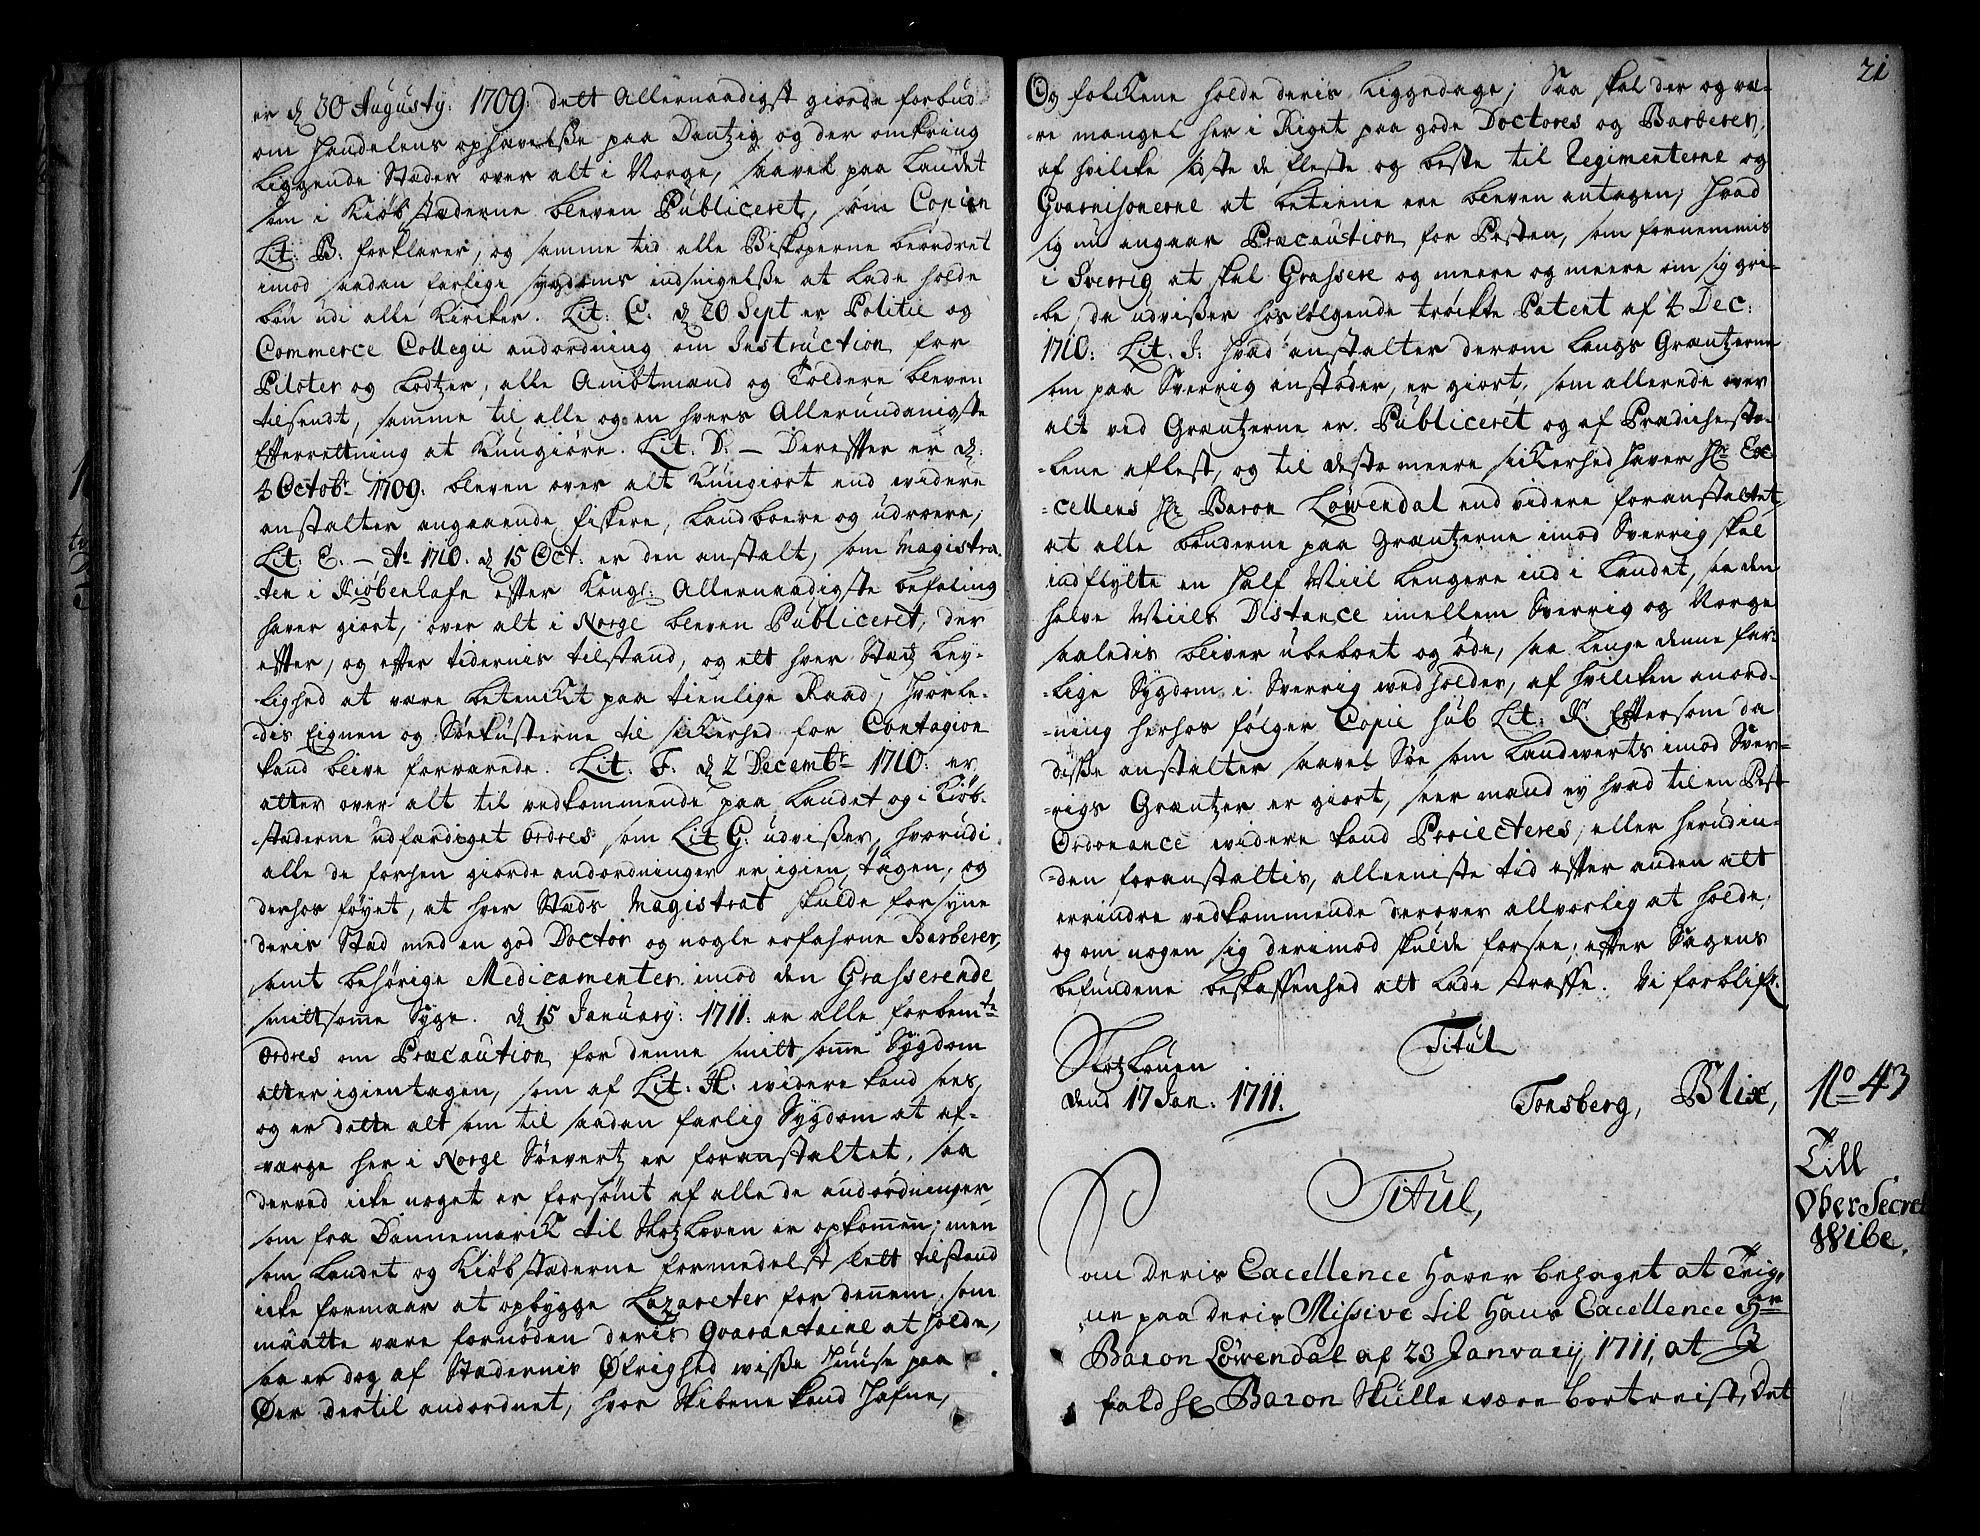 er d 30 Augusty: 1709: dett Allernaadigst giorde forbud
om handelens ophævelsse paa Dantzig og der omkring
liggende Stæder over alt i Norge, saavel paa Landet
som i Kiøbstæderne bleven Publiceret, som Copien
Lit: B. forklarer, og samme tid alle Biskoperne beordret
imod saadan farlige sygdoms indsnigelsse at lade holde
bøn udi alle Kirker. Lit: C. d 20 Sept er Politie og
Commerce Collegii andordning om Instruction for
Piloter og Lodtzer, alle Ambtmænd og Toldere bleven
tilsendt, samme til alle og en hvers Allerundanigste
Efterrettning at Kungiøre. Lit: D. – Derefter er d:
4 Octobr 1709: bleven over alt Kungiort end widere
anstalter angaaende fiskere, Landboere og udroere,
Lit: E. – Ao 1710. d 15 Oct: er den anstalt, som Magistra-
-ten i Kiøbenhafn efter Kongl: Allernaadigste befaling
haver giort, over alt i Norge bleven Publiceret, der
efter, og efter tidernis tilstand, og ett hver Stædz Ley-
-lighed at være betenckt paa tienlige Raad, hvorle-
-des Eignen og Søekusterne til sickerhed for Contagion
kand blive forvarede. Lit: F. d 2 Decembr 1710: er
atter over alt til vedkommende paa Landet og i Kiøb-
-stæderne udfærdiget ordres som Lit G: udvisser, hvorudi
alle de forhen giorde andordninger er igien tagen, og
derhos føyet, at hver Stæds Magistrat skulde forsyne
deris Stad med en god Doctor og nogle erfahrne Barberer,
samt behørige Medicamenter imod den Grasserende
smittsome Syge. d 15 January: 1711: er alle forbemte
ordres om Præcaution for denne smittsome Sygdom
atter igientagen, som af Lit: H: widere kand sees,
og er dette alt som til saadan farlig Sygdom at af-
-værge her i Norge Søevertz er foranstaltet, saa
derved icke noget er forsømt af alle de andordninger
som fra Dannemarck til Slotzloven er opkommen; men
som Landet og Kiøbstæderne formedelst slett tilstand
icke formaar at opbygge Lazareter for dennem, som
maatte være fornøden deris Qvarantaine at holde,
saa er dog af Stædernis Øfrighed wisse Huuse paa
Øer dertil andordnet, hvor Skibene kand Hafne,
21
Og folckene holde deris Liggedage; Saa skal der og væ-
-re mangel her i Riget paa gode Doctores og Barberer,
af hvilcke sidste de fleste og beste til Regimenterne og
Gvarnisonerne at betiene ere bleven antagen; hvad
sig nu angaar Præcaustion for Pesten, som fornemmis
i Sverrig at skal Grassere og meere og meere om sig gri-
-be, da udvisser hosfølgende trøckte Patent af 4 Dec:
1710: Lit. I: hvad anstalter derom langs Græntzerne
som paa Sverrig anstøder, er giort, som allerede over
alt ved Græntzerne er Publiceret og af Prædichesto-
-lene aflest, og til desto meere sickerhed haver Hr Ex-
-cellens Hr Baron Løwendal end videre foranstaltet,
at alle bønderne paa Græntzerne imod Sverrig skal
indflytte en half Miil lengere ind i Landet, saa den
halve Miils Distance imellem Sverrig og Norge
saaledis bliver ubeboet og øde, saa lenge denne far-
-lige Sygdom i Sverrig wedholder, af hvilcken anord-
-ning herhos følger Copie sub Lit: K. Eftersom da
disse anstalter saavel Søe som Landwerts imod Sver-
-rigs Græntzer er giort, seer mand ey hvad til en Pest
Ordonance widere kand Proiecteres, eller herudin-
-den foranstaltis, alleeniste tid efter anden alt
errindre vedkommende derover allvorlig at holde,
og om nogen sig derimod skulde forsee, efter Sagens
befundene beskaffenhed alt lade straffe. Vi forblifr.
Slotzlouen
Titul
dend 17 Jan: 1711.
Tonsberg, Blix,
No 43
Till
Ober Secret
Wibe.
Titul,
om Deris Excellence Haver behaget at Teig-
ne paa Deris Missive til Hans Excellence Hr
Baron Løwendal af 23 January, 1711, at I
fald Hr Baron Skulle wære bortreist, Det